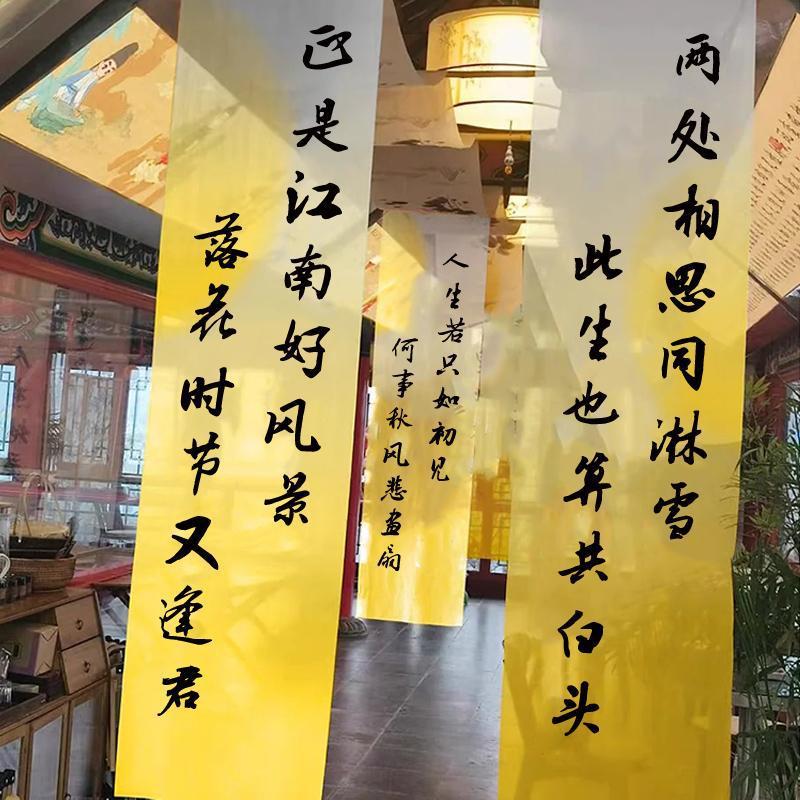 两处相思同淋雪
此生也算共白头
人生若只如初见
何事秋风悲画扇
正是江南好风景
落花时节又逢君